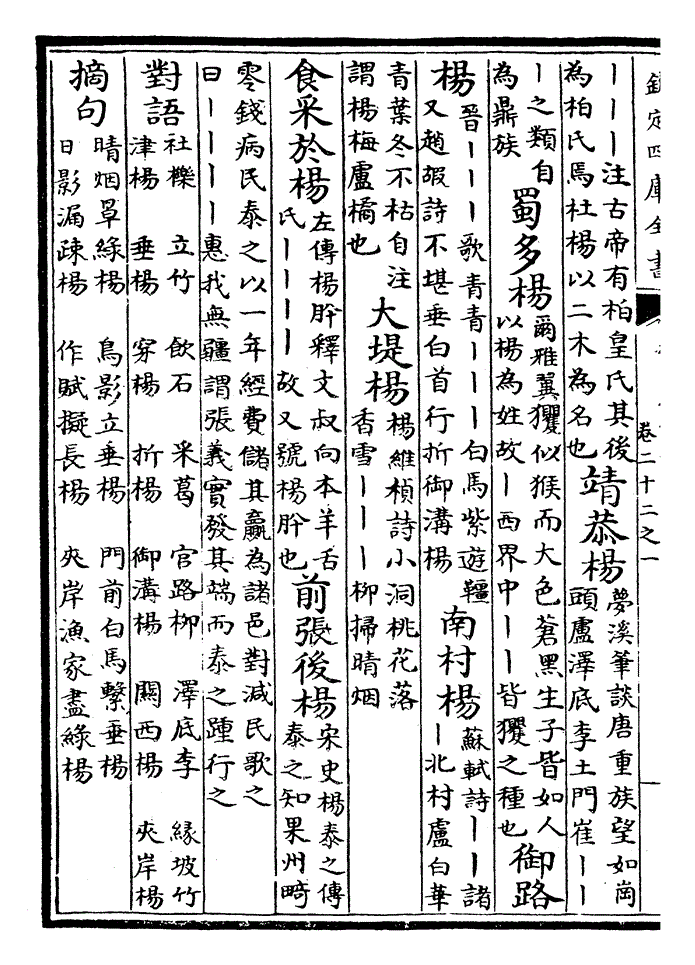 欽定四庫全書
卷二十二之一
｜｜｜注古帝有柏皇氏其後
為柏氏焉杜楊以二木為名也
靖恭楊
夢溪筆談唐重族望如崗
頭盧澤底李土門崔｜｜
｜之類自
為鼎族
蜀多楊
爾雅翼玃似猴而大色蒼黑生子皆如人
以楊為姓故｜西界中｜｜皆玃之種也
御路
楊
晉｜｜｜歌青青｜｜｜白馬紫遊韁
又趙嘏詩不堪垂白首行折御溝楊
南村楊
蘇軾詩｜｜諸
｜北村盧白華
青葉冬不枯自注
謂楊梅盧橘也
大堤楊
楊維楨詩小洞桃花落
香雪｜｜｜柳掃晴烟
食采於楊
左傳楊肸釋文叔向本羊舌
氏｜｜｜｜故又號楊肸也
前張後楊
宋史楊泰之傳
泰之知果州畸
零錢病民泰之以一年經費儲其贏為諸邑對減民歌之
曰｜｜｜｜惠我無疆謂張義實發其端而泰之踵行之
對語
社櫟 立竹 飲石 采葛 官路柳 澤底李 緣坡竹
津楊 垂楊 穿楊 折楊 御溝楊 關西楊 夾岸楊
摘句
晴烟罩綠楊 鳥影立垂楊 門前白馬繫垂楊
日影漏疎楊 作賦擬長楊 夾岸漁家盡綠楊